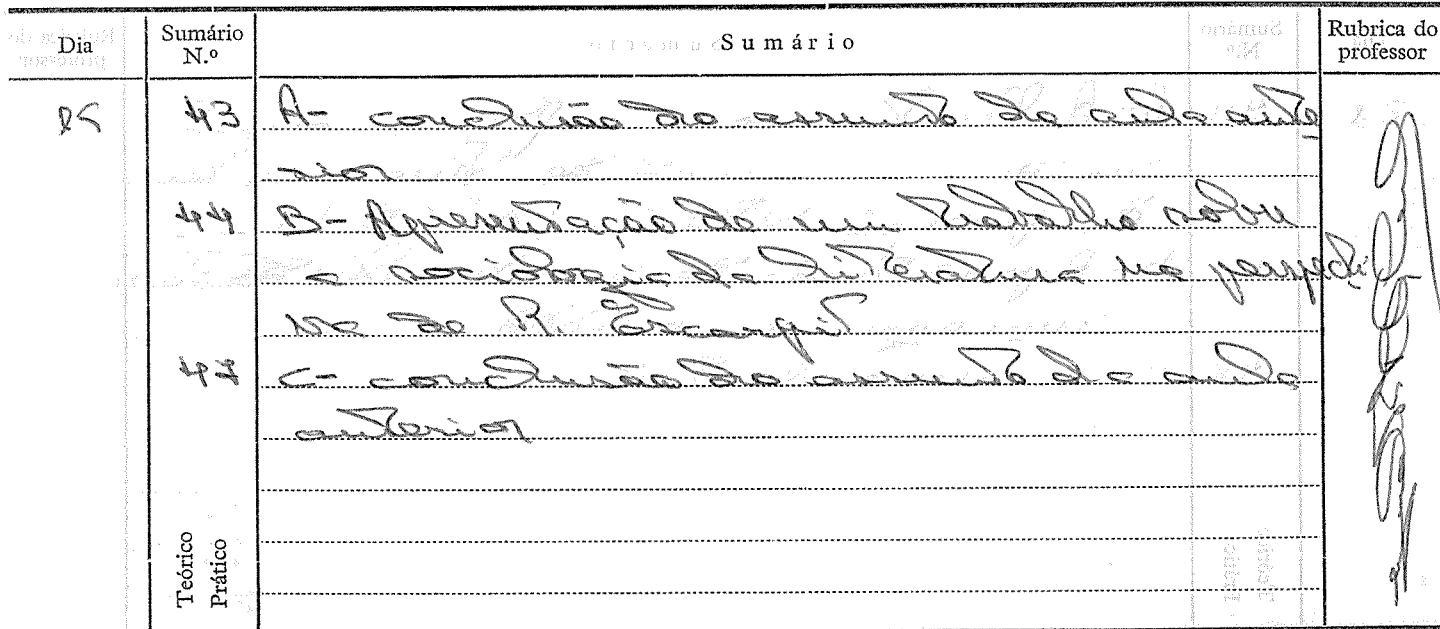 Dia Sumário N.º Sumário Rubrica do professor
25 43 A- conclusão do assunto da aula ante
rior
44 B- Apresentação de um trabalho sobre
a sociologia da literatura na perspecti
va de R. Escarpit
C- conclusão do assunto da aula
anterior
Teórico
Prático